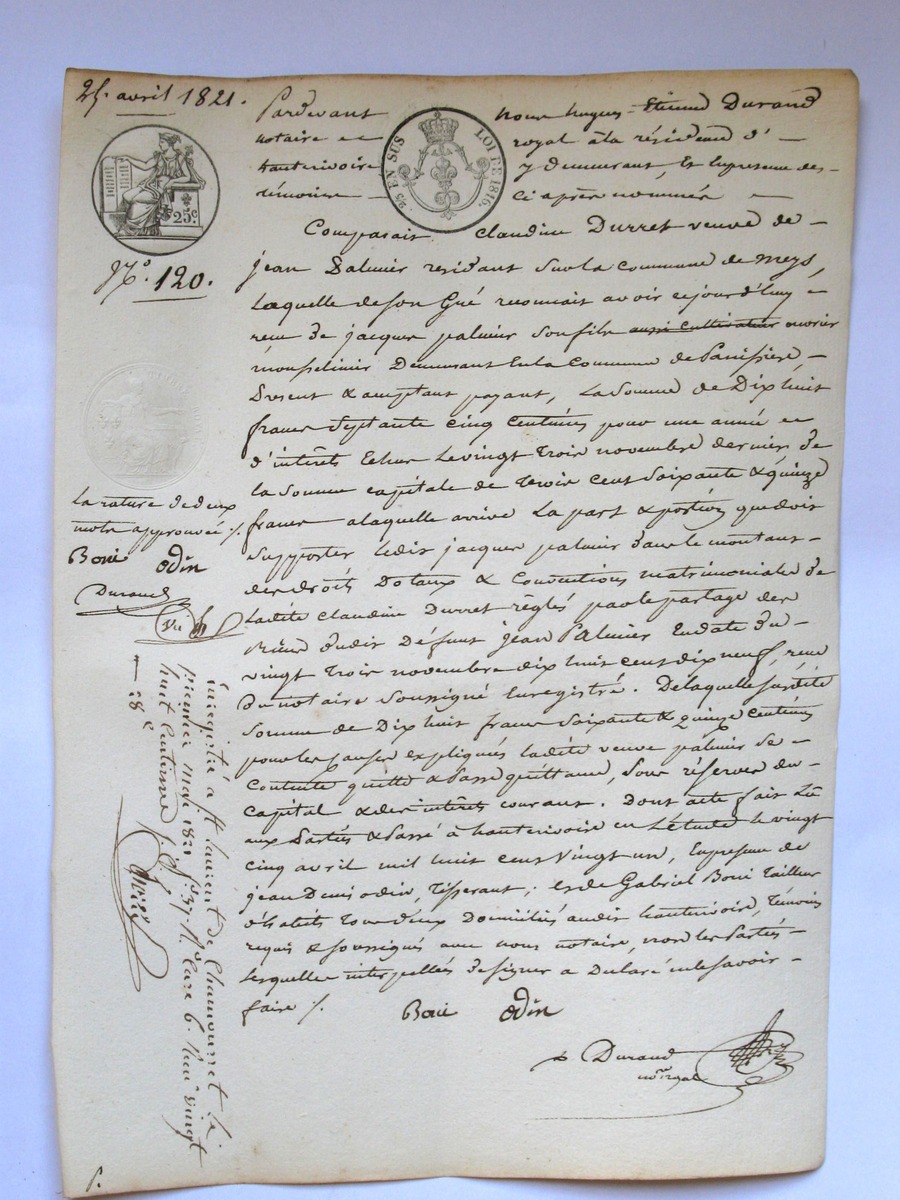 25. avril 1821.
25c.
25 EN SUS LOI DE 1816.
N.° 120.
Pardevant nous hugues Etienne Durand
notaire royal à la résidence d'
hauterivoire y demeurant, Et En presence des
témoins ci après nommés
Comparait Claudine Durret veuve de
jean Palmier residant sur la commune de Meys,
Laquelle de son Gré reconnait avoir cejourd'huy
reçu de jacques palmier son fils aussi cultivateur ouvrier
mousselinier Demeurant En la Commune de Panissière
Present & acceptant payant, La somme de Dix huit
francs septante cinq Centimes pour une année
d'intérêts Echus Le vingt trois novembre dernier de
la somme capitale de trois cent soixante & quinze
francs alaquelle arrive La part & portion que doit
supporter Ledit jacques palmier dans le montant
des droits Dotaux & Conventions matrimoniales de
Ladite Claudine Durret réglés par le partage des
Biens dudit Défunt jean Palmier En date du
vingt trois novembre dix huit cent dix neuf, reçu
Du notaire soussigné Enregistré. Delaquelle susdite
somme de Dix huit francs soixante & quinze Centimes
pour les causes expliqués ladite veuve palmier se
Contente quitte & Passe quittance, sous réserve du
capital & des intérêts courant. Dont acte fait Lu
aux Parties & Passé à hauterivoire en L'étude le vingt
cinq avril mil huit cent vingt un, En presence de
jean Denis odin, Tisserant; et de Gabriel Boni Tailleur
d'habits tous deux Domiciliés audit hauterivoire, Témoins
requis & soussignés avec nous notaire, non les Parties
Lesquelles interpellées de signer a Déclaré ne le savoir
faire ./.
Boni odin
Durand
no.re royal
La rature de deux
mots approuvée ./.
Boni odin
Durand
Vu
Enregistré à St Laurent de Chamousset le
premier mai 1821 f.° 37 R.° Case 6. Reçu vingt
huit centimes
28 c